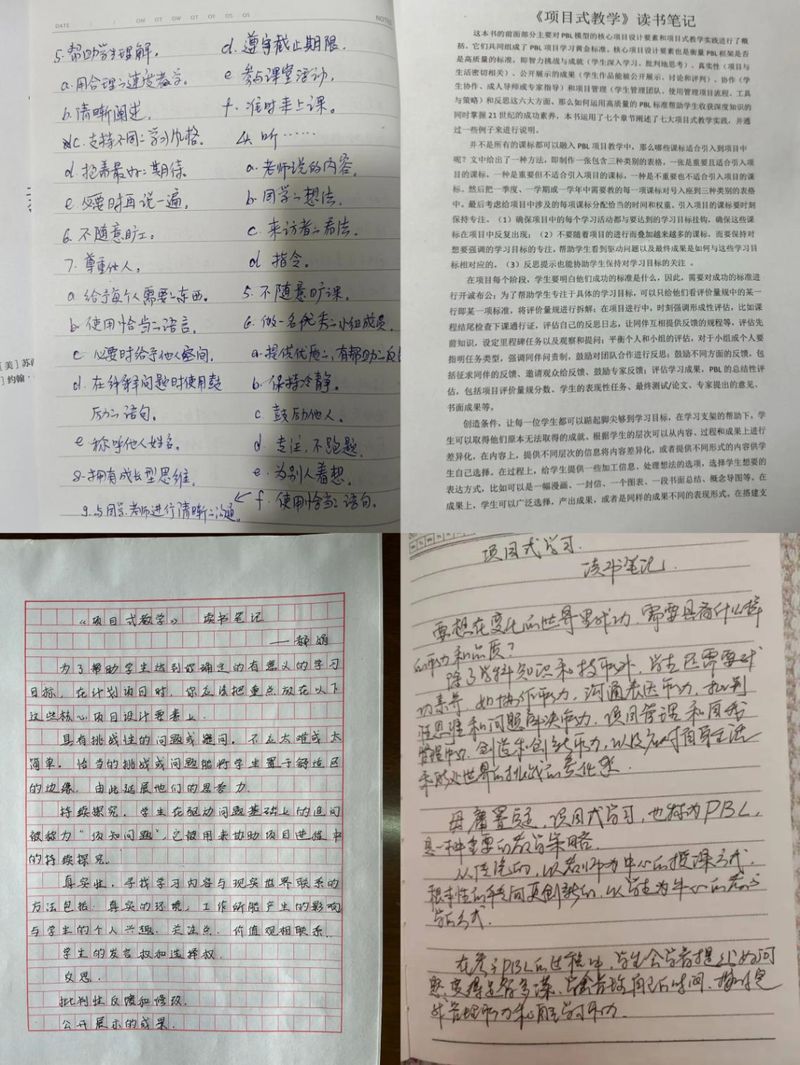 DATE
5. 帮助学生理解.
a. 用合理的速度教学.
b. 清晰阐述.
c. 支持不同的学习风格.
d. 抱着最好的期待.
e. 必要时再说一遍.
6. 不随意旷工.
7. 尊重他人.
a. 给予每个人需要的东西.
b. 使用恰当的语言.
c. 必要时给予他人空间.
d. 在纠结问题时使用鼓
励的语句.
e. 称呼他人姓名.
8. 拥有成长型思维.
9. 与同学、老师进行清晰的沟通.
d. 遵守截止期限.
e. 参与课堂活动.
f. 准时来上课.
4. 听……
a. 老师说的内容.
b. 同学的想法.
c. 来访者的看法.
d. 指令.
5. 不随意旷课.
6. 做一名优秀的小组成员.
a. 提供优质的、有帮助的反
b. 保持冷静.
c. 鼓励他人.
d. 专注, 不跑题.
e. 为别人着想.
f. 使用恰当的语句.
《项目式教学》读书笔记
这本书的前面部分主要对 PBL 模型的核心项目设计要素和项目式教学实践进行了概
括。它们共同组成了 PBL 项目学习黄金标准。核心项目设计要素也是衡量 PBL 框架是否
是高质量的标准，即智力挑战与成就（学生深入学习、批判地思考）、真实性（项目与
生活密切相关）、公开展示的成果（学生作品能被公开展示、讨论和评判）、协作（学
生协作、成人导师或专家指导）和项目管理（学生管理团队、使用管理项目流程、工具
与策略）和反思这六大方面。那么如何运用高质量的 PBL 标准帮助学生收获深度知识的
同时掌握 21 世纪的成功素养，本书运用了七个章节阐述了七大项目式教学实践，并通
过一些例子来进行说明。
并不是所有的课标都可以融入 PBL 项目教学中，那么哪些课标适合引入到项目中
呢？文中给出了一种方法，即制作一张包含三种类别的表格，一张是重要且适合引入项
目的课标、一种是重要但不适合引入项目的课标、一种是不重要也不适合引入项目的课
标。然后把一季度、一学期或一学年中需要教的每一项课标对号入座到三种类别的表格
中。最后考虑给项目中涉及的每项课标分配恰当的时间和权重。引入项目的课标要时刻
保持专注。（1）确保项目中的每个学习活动都与要达到的学习目标挂钩，确保这些课
标在项目中反复出现；（2）不要随着项目的进行而叠加越来越多的课标，而要保持对
想要强调的学习目标的专注，帮助学生看到驱动问题以及最终成果是如何与这些学习目
标相对应的。（3）反思提示也能协助学生保持对学习目标的关注 。
在项目每个阶段，学生要明白他们成功的标准是什么，因此，需要对成功的标准进
行开诚布公；为了帮助学生专注于具体的学习目标，可以只给他们看评价量规中的某一
行即某一项标准，将评价量规进行拆解；在项目进行中，时刻强调形成性评估，比如课
程结尾检查下课通行证，评估自己的反思日志，让同伴互相提供反馈的规程等，评估先
前知识，设定里程碑任务以及观察和提问；平衡个人和小组的评估，对于小组成个人要
指明任务类型，强调同伴问责制，鼓励对团队合作进行反思；鼓励不同方面的反馈，包
括征求同伴的反馈、邀请观众给反馈、鼓励专家反馈；评估学习成果，PBL 的总结性评
估，包括项目评价量规分数、学生的表现性任务、最终测试/论文、专家提出的意见、
书面成果等。
创造条件，让每一位学生都可以踮起脚尖够到学习目标，在学习支架的帮助下，学
生可以取得他们原本无法取得的成就。根据学生的层次可以从内容、过程和成果上进行
差异化，在内容上，提供不同层次的信息将内容差异化，或者提供不同形式的内容供学
生自己选择。在过程上，给学生提供一些加工信息、处理想法的选项，选择学生想要的
表达方式，比如可以是一幅漫画、一封信、一个图表、一段书面总结、概念导图等。在
成果上，学生可以广泛选择，产出成果，或者是同样的成果不同的表现形式。在搭建支
《项目式教学》 读书笔记
为了帮助学生达到你确定的有意义的学习
目标，在计划项目时，你应该把重点放在以下
这些核心项目设计要素上.
具有挑战性的问题或疑问。不应太难或太
简单，恰当的挑战或问题能将学生置于舒适区
的边缘，由此延展他们的思考力.
持续探究. 学生在驱动问题基础上的追问
被称为“须知问题”，它被用来协助项目进程中
的持续探究.
真实性. 寻找学习内容与现实世界联系的
方法包括：真实的环境，工作所能产生的影响
与学生的个人兴趣、关注点、价值观相联系.
学生的发言权和选择权.
反思.
批判性反馈和修改.
公开展示的成果.
项目式学习.
读书笔记1.
要想在变化的世界里成功, 需要具备什么样
的能力和品质?
除了学科知识和技能外, 学生还需要成
功素养, 如协作能力, 沟通表达能力, 批判
性思维和问题解决能力, 项目管理和自我
管理能力, 创造和创新能力, 以及应对自身生活
和所处世界的挑战的责任感.
毋庸置疑, 项目式学习, 也称为PBL,
是一种重要的教学策略.
从传统的, 以教师为中心的授课方式
根本性的转向更创新的, 以学生为中心的教与
学的方式.
在参与PBL的过程中, 学生会学着提出好问
题, 变得足智多谋, 学会管理自己的时间,